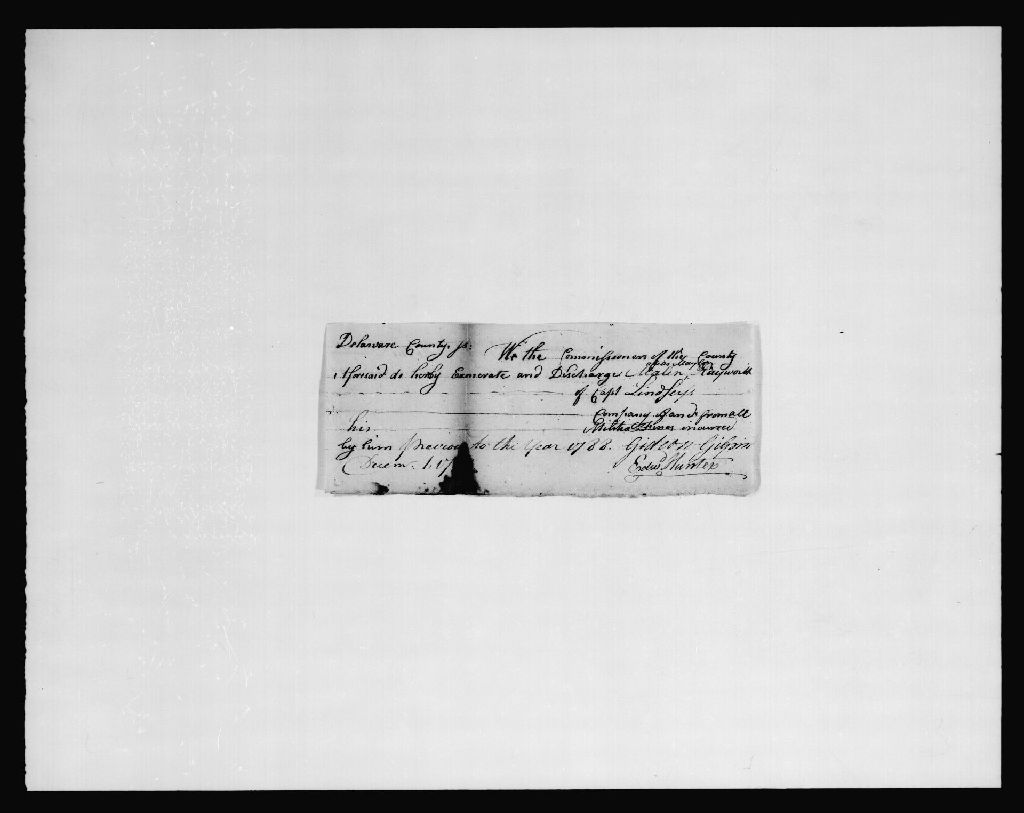 Delaware County, ss. We the Commissioners of the County
aforesaid do hereby Exonerate and Discharge
of Capt Lindseys
Company from all
his Militia Fines incurred
by him Previous to the Year 1788. Gideon Gilpin
Decem. 1. 17 Hunter